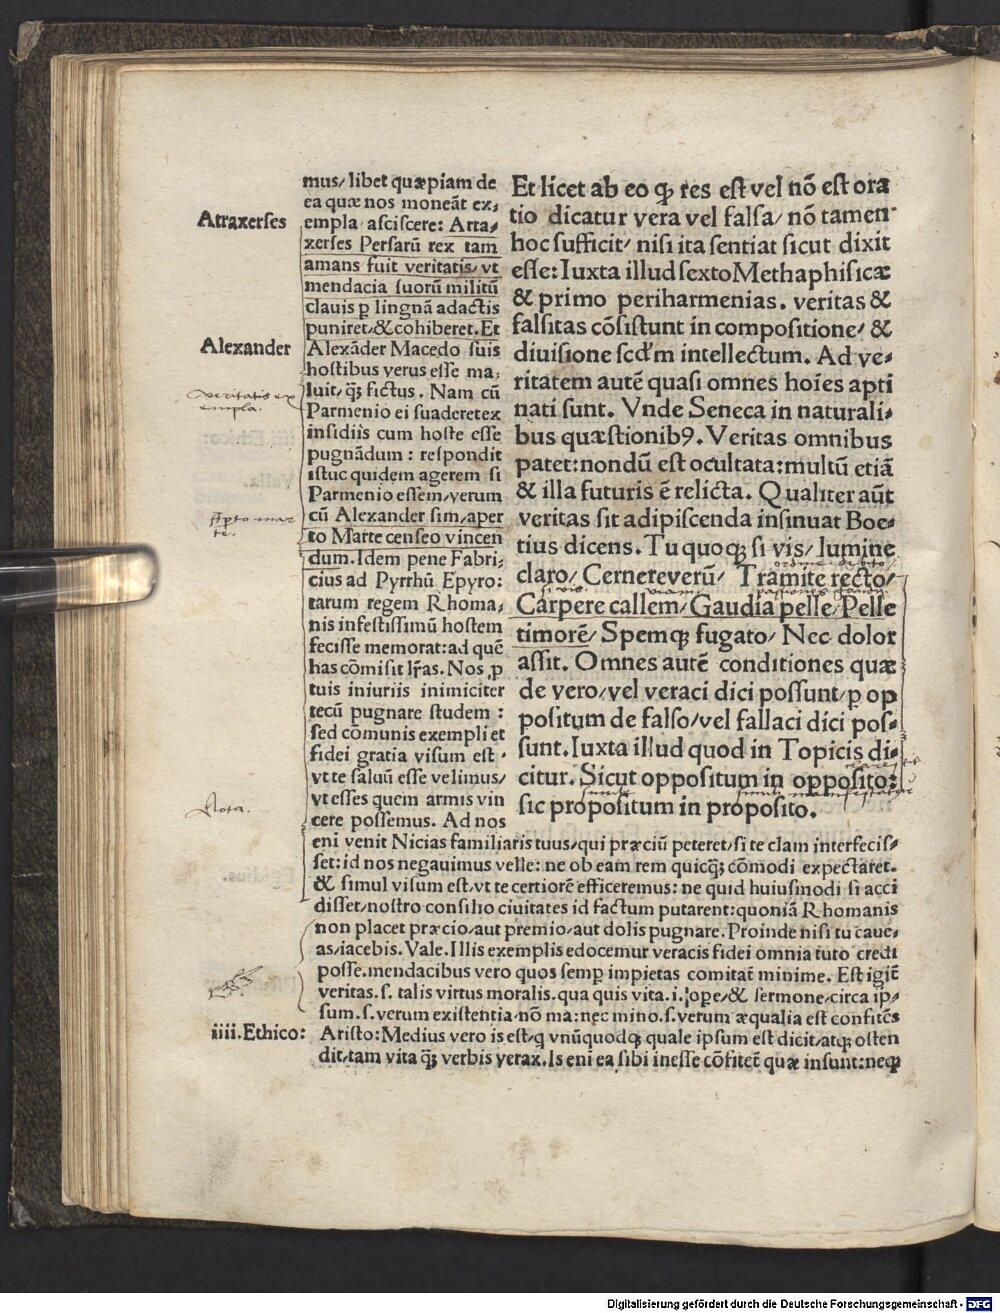 mus/ libet quæpiam de
ea quæ nos moneāt ex⸗
Atraxerses
empla asciscere: Arta⸗
xerses Persarū rex tam
amans fuit veritatis/ vt
mendacia suorū militū
clauis ꝑ lingnā adactis
puniret/&cohiberet. Et
Alexander
Alexāder Macedo suis
hostibus verus esse ma⸗
luit/ ꝗ̈ꝫ fictus. Nam cū
veritatis ex
empla.
Parmenio ei suaderetex
insidiis cum hoste esse
pugnādum : respondit
istuc quidem agerem si
Parmenio essem/verum
cū Alexander sim/aper
to Marte censeo vincen
dum. Idem pene Fabri⸗
cius ad Pyrrhū Epyro:
tarum regem Rhoma⸗
nis infestissimū hostem
fecisse memorat: ad quē
has cōmisit lr̄as. Nos ꝓ
tuis iniuriis inimiciter
tecū pugnare studem :
sed cōmunis exempli et
fidei gratia visum est ·
vt te saluū esse velimus/
Nota.
vt esses quem armis vin
cere possemus. Ad nos
Et licet ab eo ꝙ res est vel nō est ora
tio dicatur vera vel falsa/ nō tamen
hoc sufficit/ nisi ita sentiat sicut dixit
esse: Iuxta illud sexto Methaphisicæ
& primo periharmenias. veritas &
falsitas cōsistunt in compositione/ &
diuisione scd'm intellectum. Ad ve⸗
ritatem autē quasi omnes hoīes apti
nati sunt. Vnde Seneca in naturali⸗
bus quæstionib9. Veritas omnibus
patet: nondū est ocultata: multū etiā
& illa futuris ē relicta. Qualiter aūt
veritas sit adipiscenda insinuat Boe⸗
tius dicens. Tu quoqꝫ si vis/ lumine
claro/ Cernereverū/ Tramite recto/
Carpere callem/ Gaudia pelle/ Pelle
timorē/ Spemqꝫ fugato/ Nec dolor
assit. Omnes autē conditiones quæ
de vero/vel veraci dici possunt/ꝑ op
positum de falso/vel fallaci dici pos⸗
sunt. Iuxta illud quod in Topicis di⸗
citur. Sicut oppositum in opposito:
sic propositum in proposito.
eni venit Nicias familiaris tuus/qui præciū peteret/si te clam interfecis⸗
set: id nos negauimus velle: ne ob eam rem quicqꝫ cōmodi expectaret.
& simul visum est/vt te certiorē efficeremus: ne quid huiusmodi si acci
disset/nostro consilio ciuitates id factum putarent: quoniā Rhomanis
non placet præcio/aut premio/aut dolis pugnare. Proinde nisi tu caue⸗
as/iacebis. Vale. Illis exemplis edocemur veracis fidei omnia tuto credi
posse. mendacibus vero quos semꝑ impietas comitat̄ minime. Est igit̄
veritas. s. talis virtus moralis. qua quis vita. i. ope/& sermone/circa ip⸗
sum. s. verum existentia nō ma: nec mino. s. verum æqualia est confitēs
iiii. Ethico:
Aristo: Medius vero is est/q vnūquodqꝫ quale ipsum est dicit/atqꝫ osten
dit/tam vita ꝗ̈ꝫ verbis verax. Is eni ea sibi inesse cōfitet̄ quæ insunt: neqꝫ
Digitalisierung gefördert durch die Deutsche Forschungsgemeinschaft - DFG